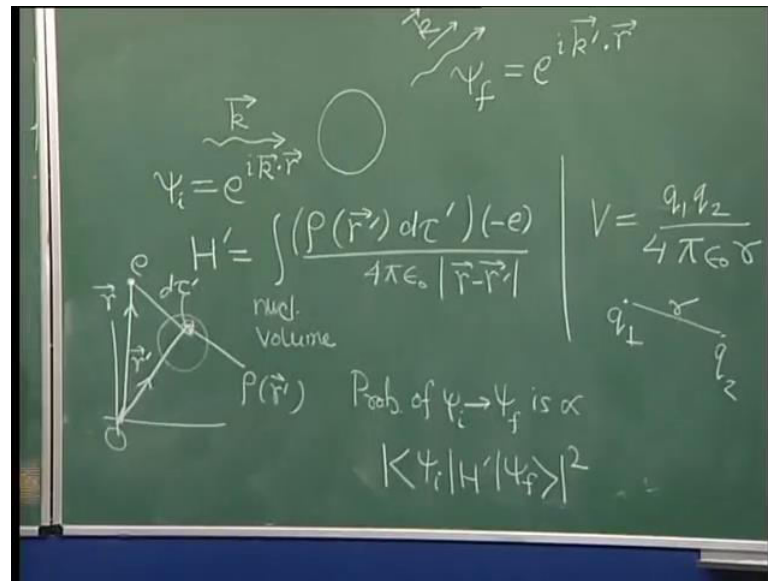 k⃗
ψ_f = e^{ik⃗'·r⃗}
k⃗
ψ_i = e^{ik⃗·r⃗}
H' = ∫ (ρ(r⃗')dτ')(-e) / 4πε₀|r⃗-r⃗'|
nucl.
volume
V = q₁q₂ / 4πε₀r
q₁ r q₂
e
dτ'
r⃗
r⃗'
ρ(r⃗')
O
Prob. of ψ_i→ψ_f is ∝
|<ψ_i|H'|ψ_f>|²